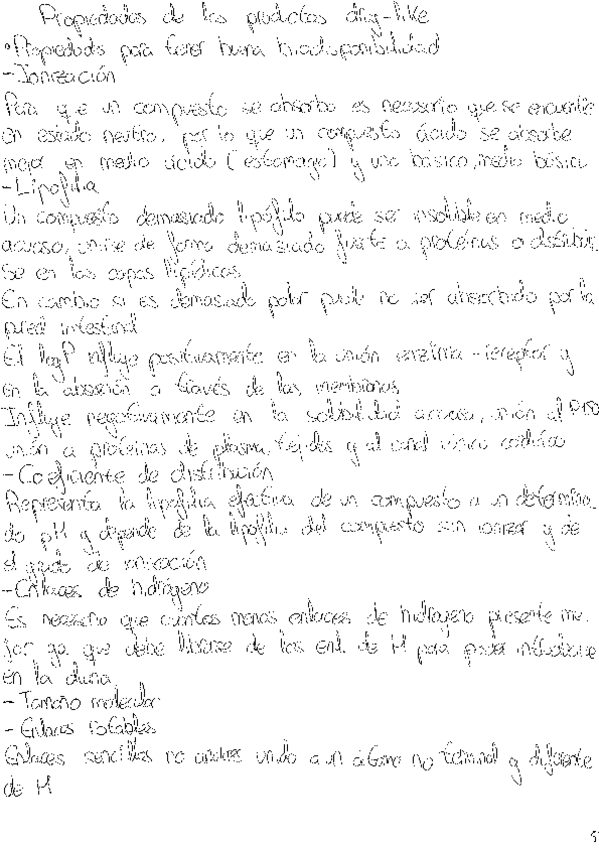 Propiedades de los productos drug-like
• Propiedades para tener buena biodisponibilidad
- Ionización
Para que un compuesto se absorba es necesario que se encuentre
en estado neutro, por lo que un compuesto ácido se absorbe
mejor en medio ácido (estómago) y uno básico, medio básico
- Lipofilia
Un compuesto demasiado lipófilo puede ser insoluble en medio
acuoso, unirse de forma demasiado fuerte a proteínas o distribuir
se en las capas lipídicas
En cambio si es demasiado polar puede no ser absorbido por la
pared intestinal
El logP influye positivamente en la unión enzima-receptor y
en la absorción a través de las membranas
Influye negativamente en la solubilidad acuosa, unión al
unión a proteínas de plasma, tejidos y al canal cardíaco
- Coeficiente de distribución
Representa la lipofilia efectiva de un compuesto a un determina
do pH y depende de la lipofilia del compuesto sin ionizar y de
el grado de ionización
- Enlaces de hidrógeno
Es necesario que cuantos menos enlaces de hidrógeno presente me
jor ya que debe liberarse de los enl. de H para poder introducirse
en la
- Tamaño molecular
- Enlaces rotables
Enlaces sencillos no unido a un átomo no terminal y diferente
de H
5